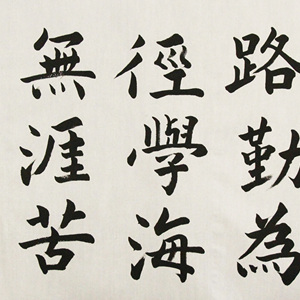 路勤為
徑學海
無涯苦